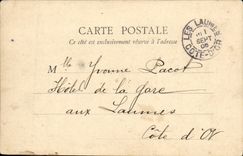 CARTE POSTALE
Ce côté est exclusivement réservé à l'adresse
LES LAUMES
1
SEPT
CÔTE-D'OR
Mlle Yvonne Pacot
Hôtel de la Gare
aux Laumes
Côte d'Or